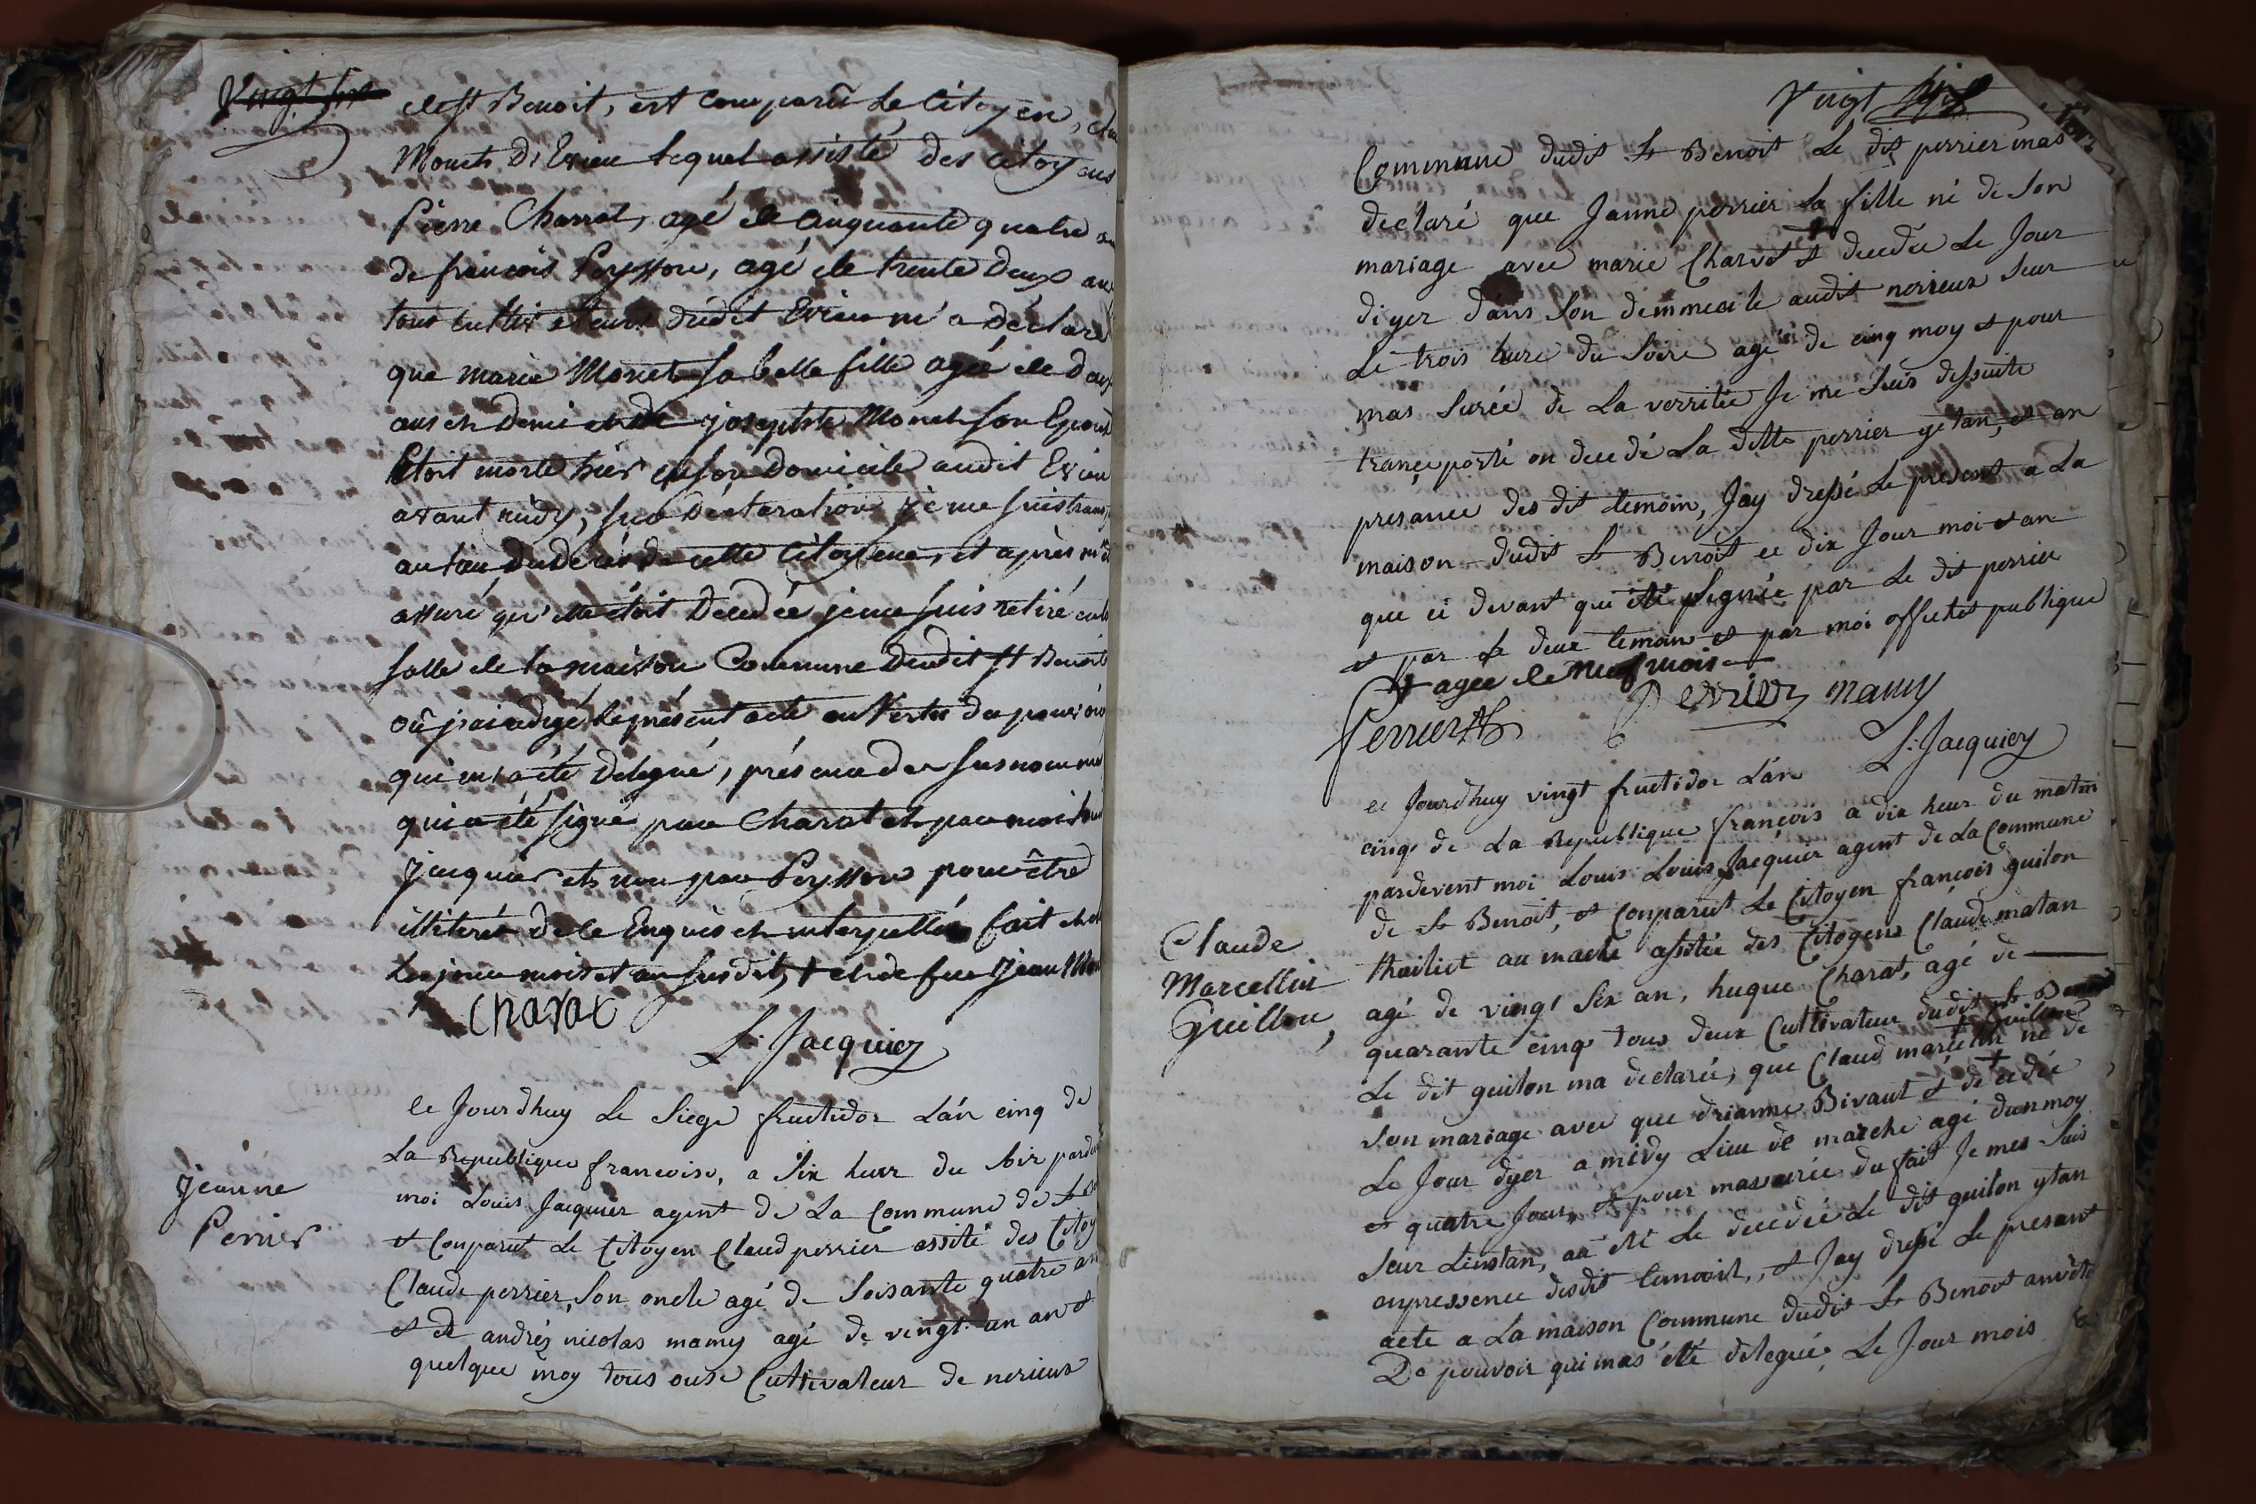 de st Benoit, est comparû Le Citoyen
Monet D'Evieu lequel assisté des citoyens
Pierre Charrat, agé de cinquante quatre
de françois Peysson, agé de trente deux ans
tous cultivateurs dudit Evieu m'a déclaré
que marie Monet sa belle fille agée de deux
ans et demi et de josephte Monet son Epouse
Etoit morte hier en son domicile audit Evieu
avant midy, sur Déclaration je me suis transp
au lieu du décès de cette Citoyene, et après m'être
assuré qu'elle étoit Décedée je me suis retiré en la
salle de la maison Commune Dudit st Benoit
où j'ai redigé le présent acte en Vertu du pouvoir
qui m'a été Délegué, présence des susnommés
qui a été signé par Charat et par moi Louis
Jacquier et non par Peysson pour être
illiteré De ce Enquis et interpellé fait et
Les jour mois et an susdit, + et de feu Jean Mon
Charat
L. Jacquier
Jeanne
Perrier
ce Jourdhuy Le Siege fructidor Lán cinq de
La Republique françoise, a Six heur du soir pard
moi Louis Jacquier agent de La Commune de St
et Conparut Le Citoyen Claud perrier assité des Citoy
Claude perrier, Son oncle agé de Soisante quatre an
et de andréz nicolas mamy agé de vingt un an et
quelque moy tous
Cultivateur de nerieux
Vingt
Commune dudit St Benoit Le dit perrier mas
declaré que Janne perrier La fille né de Son
mariage avec marie Charvet et decedée Le Jour
diyer dans Son demmecile audit nerieux Seur
Le trois hure du Soire agé de cinq moy et pour
mas Surée de La verritée Je me Suis dessuite
trançeporté ou decedé La ditte perrier yetan, et an
presance des dit temoin, Jay dressé Le present a La
maison dudit St Benoit ce dix Jour moi et an
que ci devant qui eté Signée par Le dit perrier
et par Le deux temoin et par moi officher publique
+ agée de neuf mois +
Perrier
Perrier mamy
L. Jacquier
Claude
Marcellin
Guillon,
ce Jourdhuy vingt fructidor Lán
cinq de La Republique françois a dix heur du matin
pardevent moi Louis Louis Jacquier agent de La Commune
de St Benoit, et Conparut Le Citoyen françois guilon
au marche assitée des Citoyens Claude matan
agé de vingt Six an, huque Charat, agé de
quarante cinq tous deux Cultivateur dudit St Benoit
Le dit guilon ma declarée, que Claud marcelin + Guillon né de
Son mariage avec que drianne Bivant et decedée
Le Jour dyer a midy Lieu de marche agé dunmoy
et quatre Jour, et pour massurée du fait Je mes Suis
Seur Linstan, aü eté Le decedée Le dit guilon ytan
enpressence desdit temoint, et Jay dressé Le presant
acte a La maison Commune dudit St Benoit
De pouvoir qui mas été delegué Le Jour mois